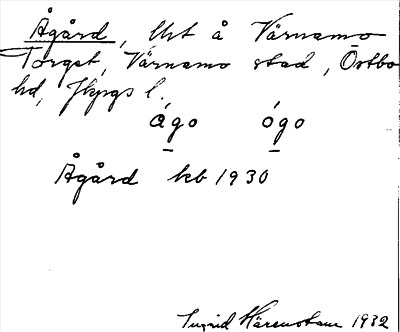 Ågård, Urt å Värnamo
Torget, Värnamo stad, Östbo
hd, Jkpgs l.
ágo ógo
Ågård kb 1930
Ingrid Härenstam 1932